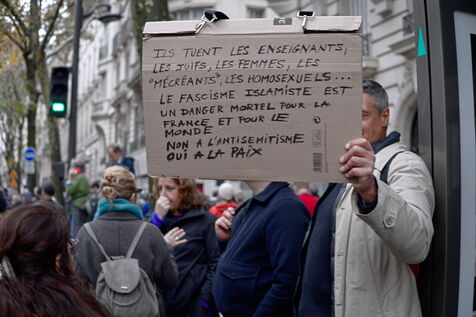 ILS TUENT LES ENSEIGNANTS,
LES JUIFS, LES FEMMES, LES
"MÉCRÉANTS", LES HOMOSEXUELS...
LE FASCISME ISLAMISTE EST
UN DANGER MORTEL POUR LA
FRANCE ET POUR LE
MONDE
NON A L'ANTISEMITISME
OUI A LA PAIX